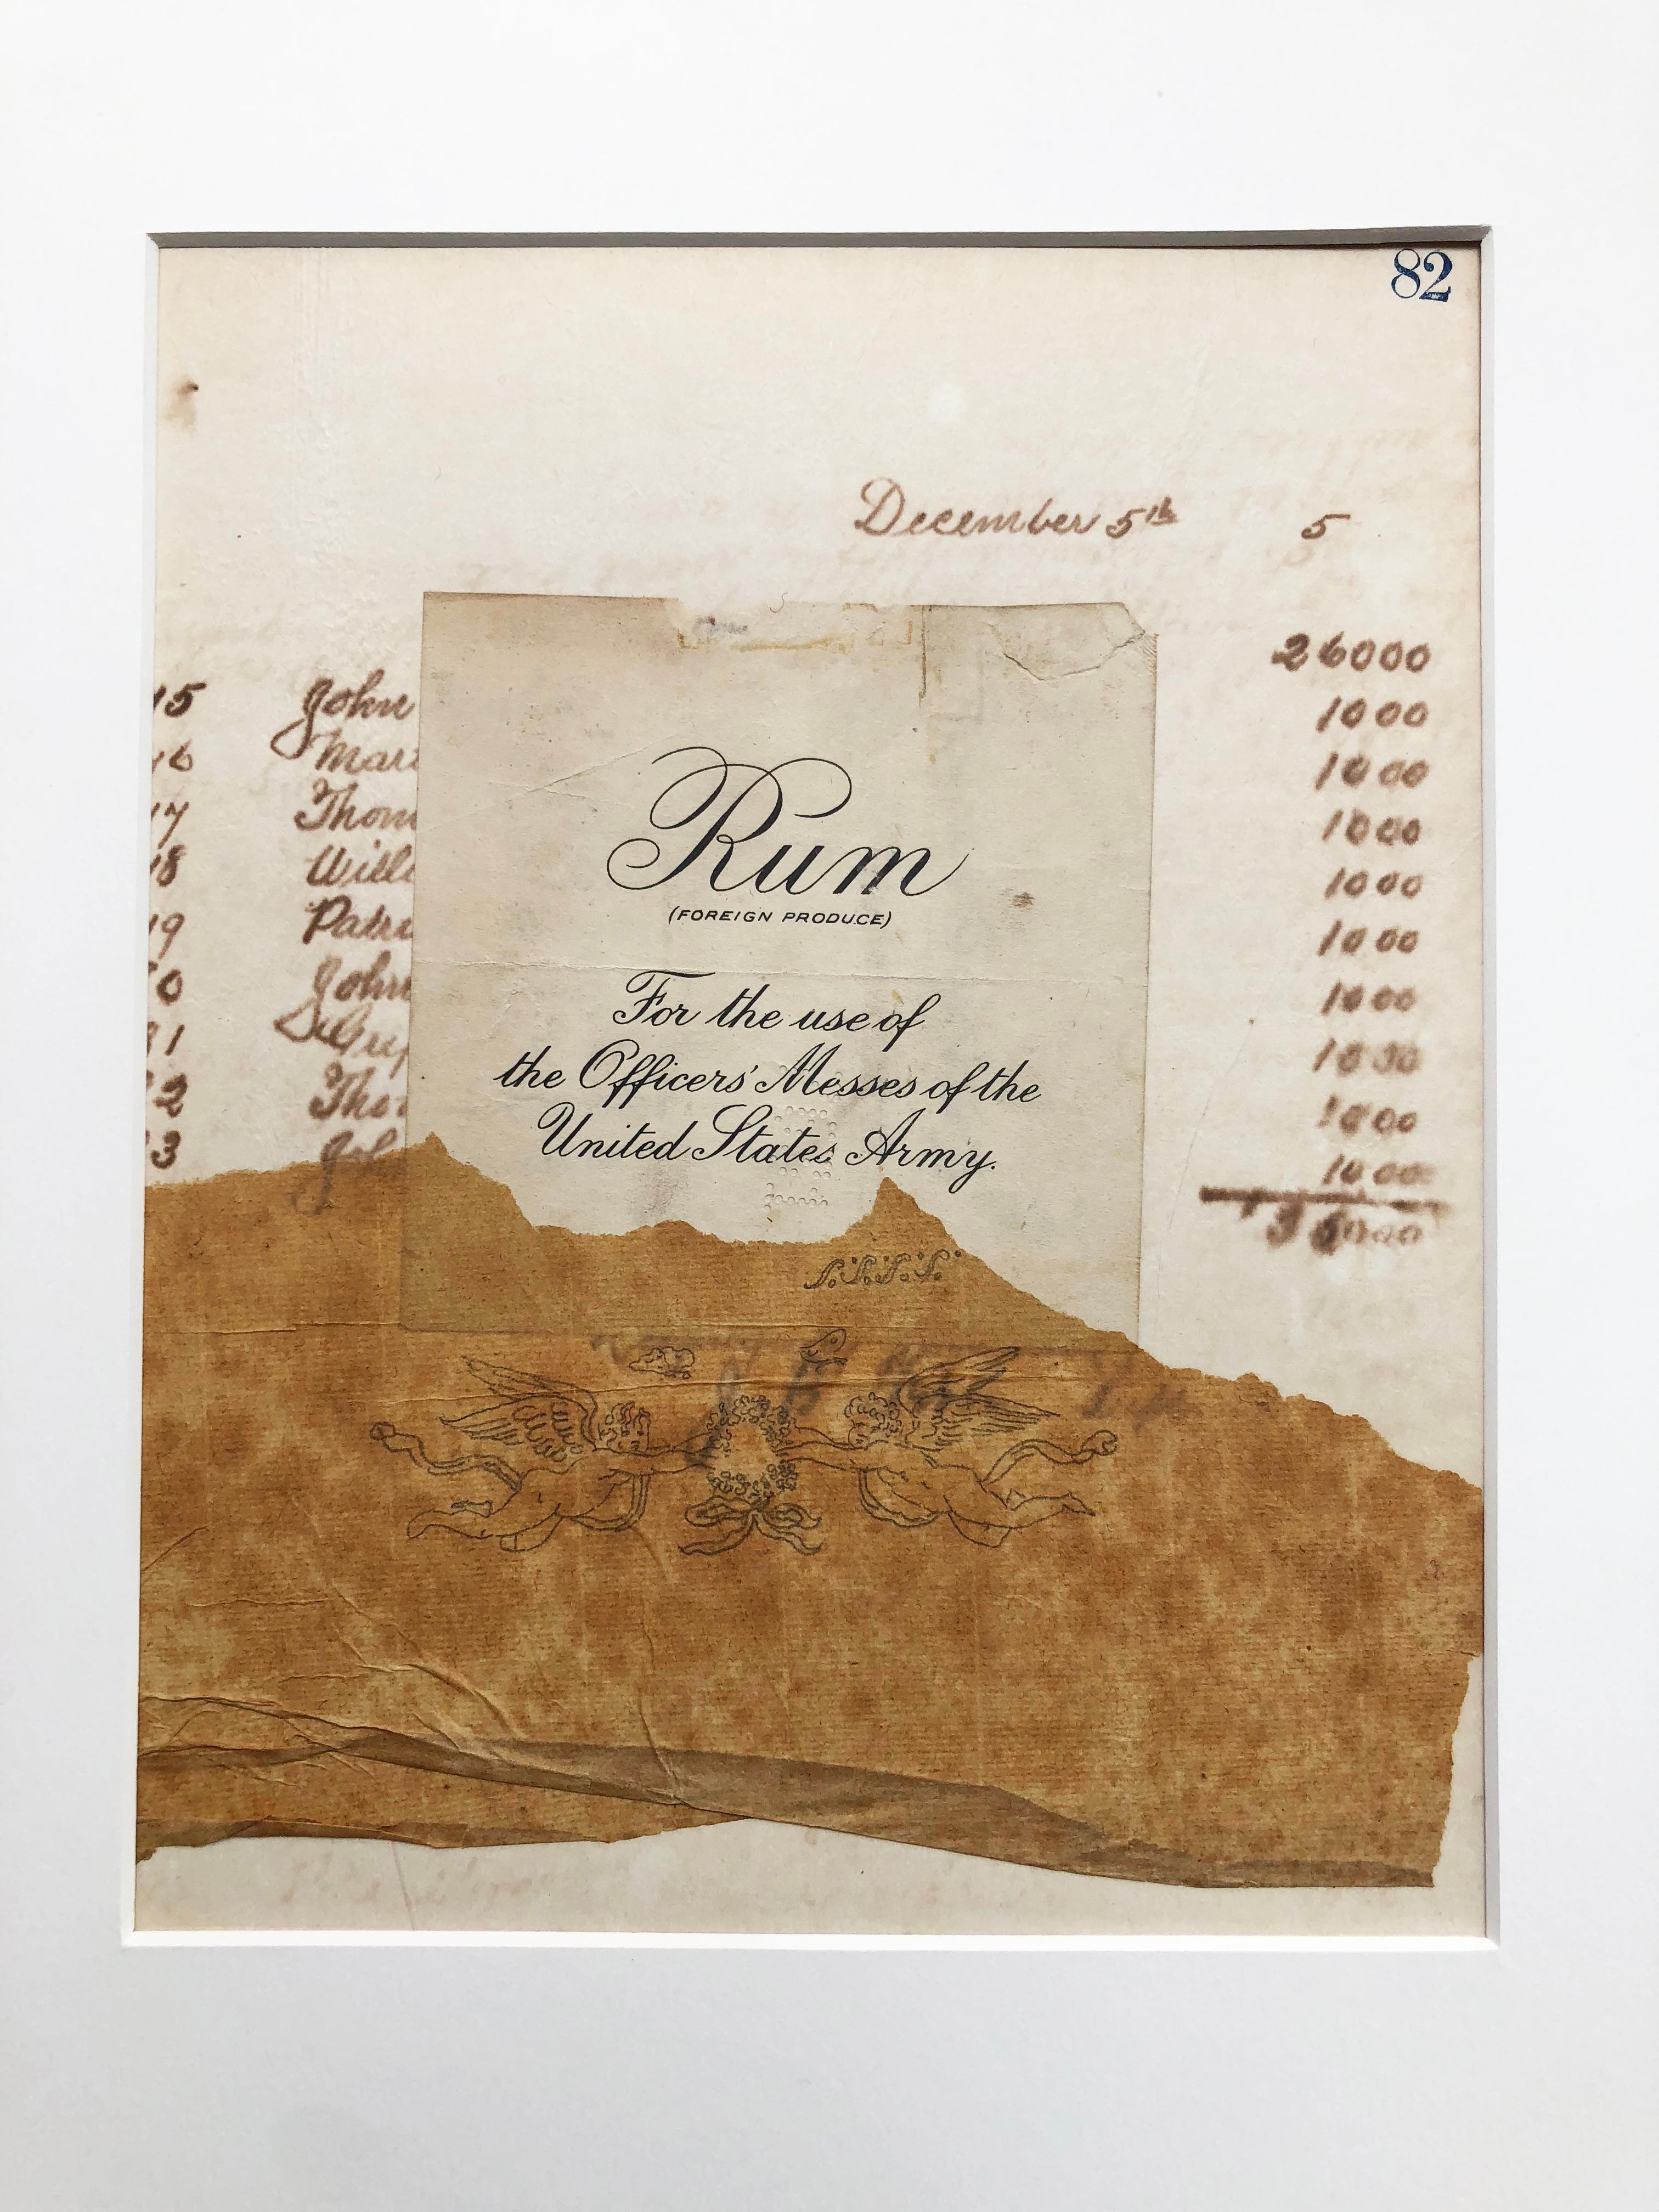 82
December 5th 5
26000
15 John 1000
16 Mari 1000
17 Thom 1000
18 Willi 1000
19 Patri 1000
0 John 1000
1 1000
2 Tho 1000
3 Joh 1000
35000
Rum
(FOREIGN PRODUCE)
For the use of
the Officers' Messes of the
United States Army.